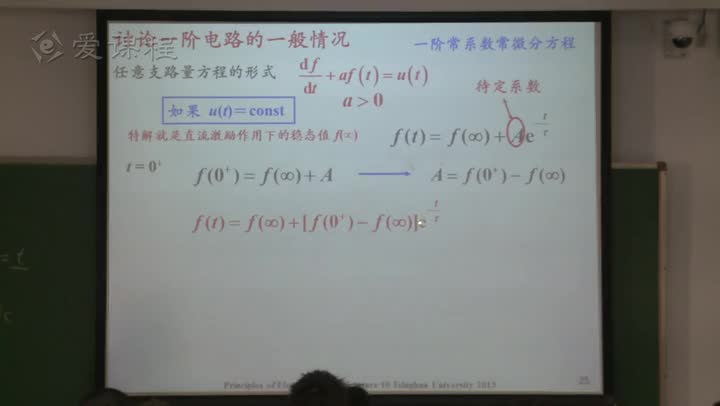 爱课程
讨论一阶电路的一般情况
一阶常系数常微分方程
任意支路量方程的形式 df/dt + af(t) = u(t)
a > 0
待定系数
如果 u(t) = const
特解就是直流激励作用下的稳态值 f(∞)
f(t) = f(∞) + Ae^{-t/τ}
t = 0⁺
f(0⁺) = f(∞) + A
A = f(0⁺) − f(∞)
f(t) = f(∞) + [f(0⁺) − f(∞)]e^{-t/τ}
Principles of
10 Tsinghua University 2013
25